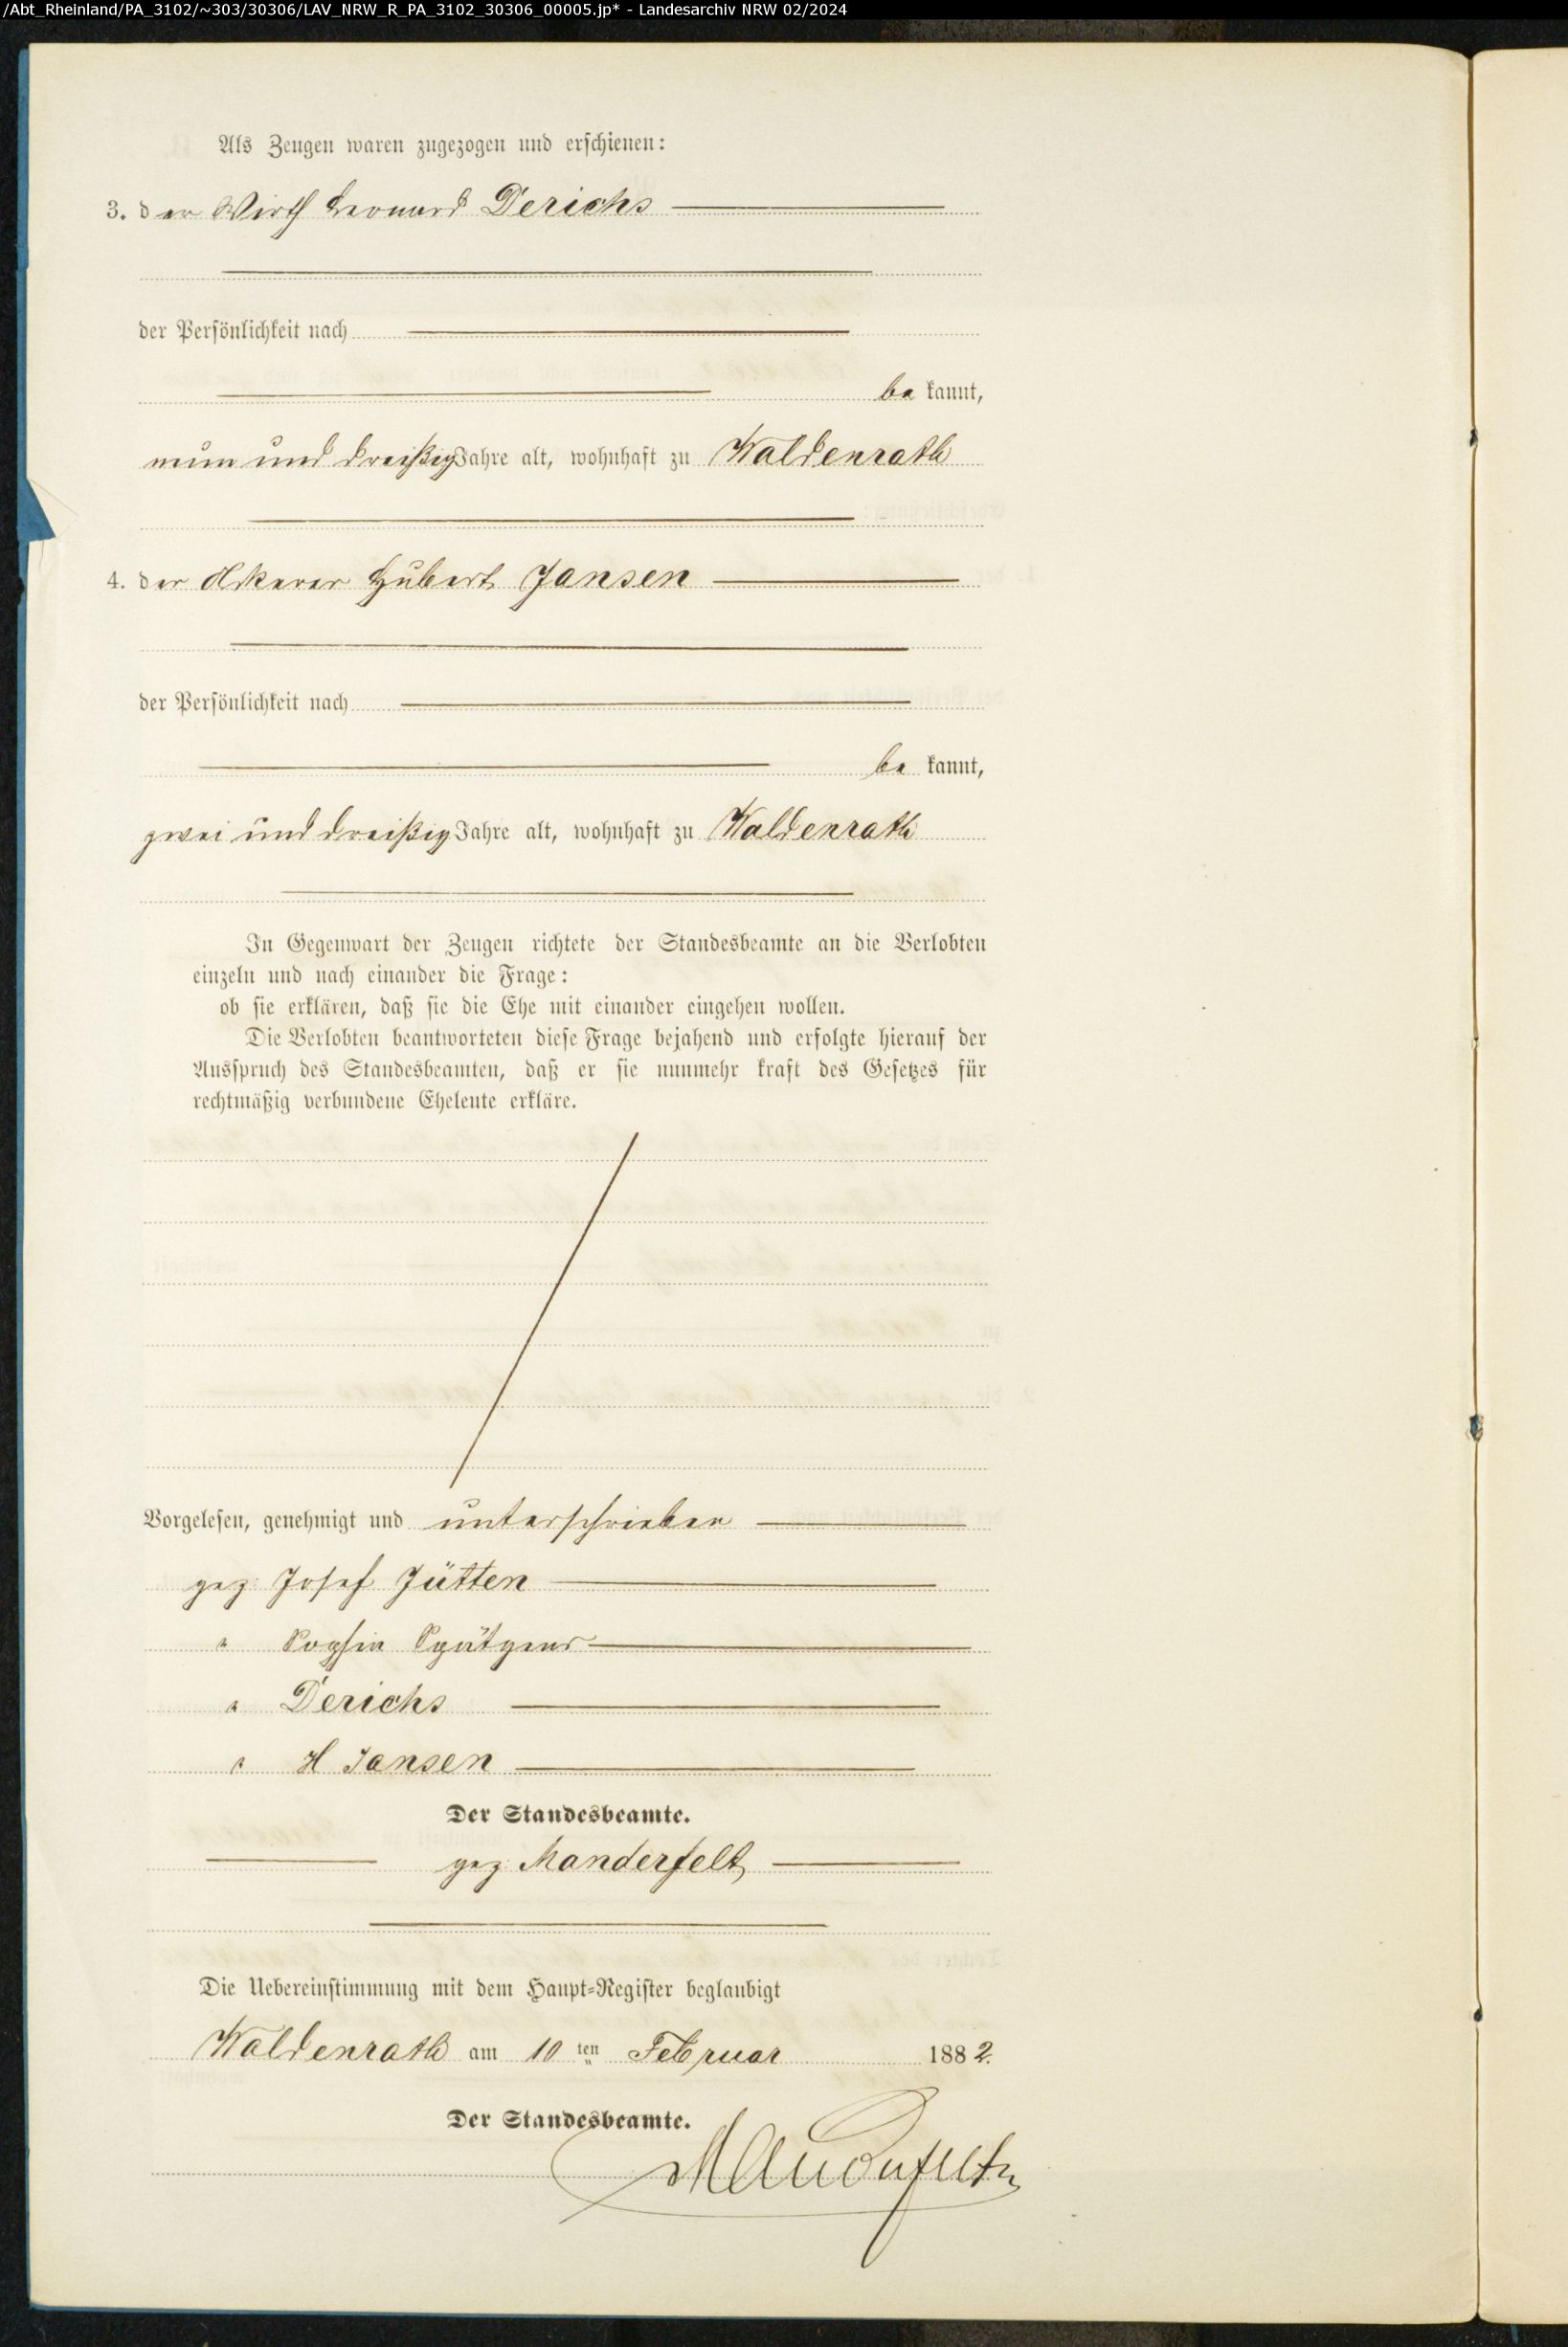 /Abt_Rheinland/PA_3102/~303/30306/LAV_NRW_R_PA_3102_30306_00005.jp* - Landesarchiv NRW 02/2024
Als Zeugen waren zugezogen und erschienen:
3. der Wirth Leonard Derichs
der Persönlichkeit nach
be kannt,
neun und dreißig Jahre alt, wohnhaft zu Waldenrath
4. der Ackerer Hubert Jansen
der Persönlichkeit nach
be kannt,
zwei und dreißig Jahre alt, wohnhaft zu Waldenrath
In Gegenwart der Zeugen richtete der Standesbeamte an die Verlobten
einzeln und nach einander die Frage:
ob sie erklären, daß sie die Ehe mit einander eingehen wollen.
Die Verlobten beantworteten diese Frage bejahend und erfolgte hierauf der
Ausspruch des Standesbeamten, daß er sie nunmehr kraft des Gesetzes für
rechtmäßig verbundene Eheleute erkläre.
Vorgelesen, genehmigt und unterschrieben
gez Josef Jütten
" Sophia Spätgens
" Derichs
" H Jansen
Der Standesbeamte.
gez. Manderfelt
Die Uebereinstimmung mit dem Haupt-Register beglaubigt
Waldenrath am 10 ten Februar 1882.
Der Standesbeamte.
Manderfelt